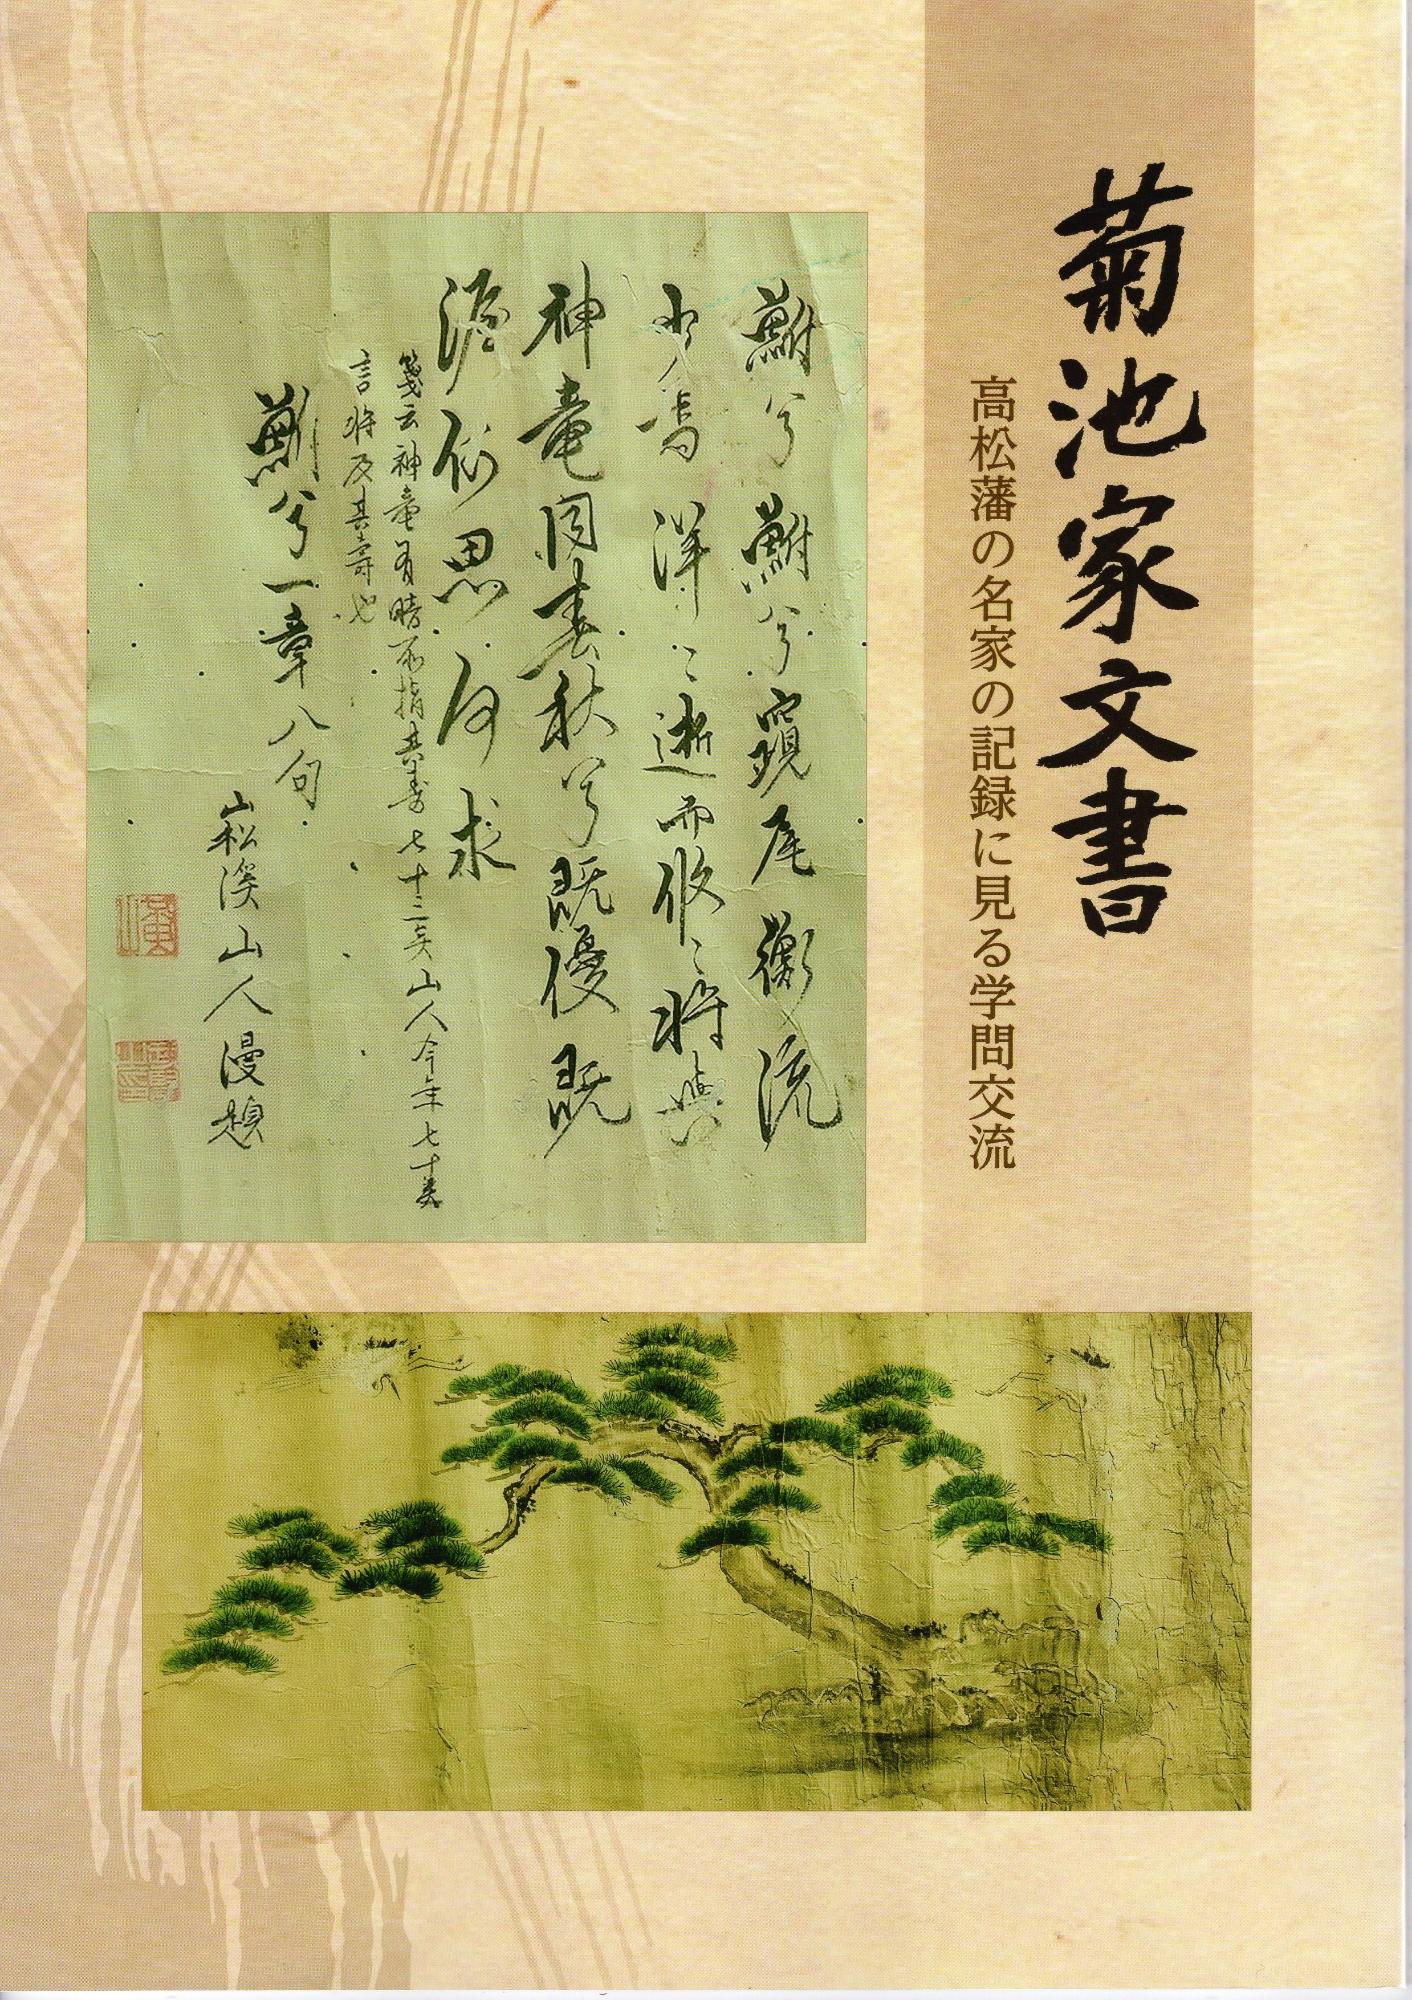 菊池家文書
高松藩の名家の記録に見る学問交流
兮 兮窺尾衡流
水焉洋〻逝而攸〻将與
神竜同春秋兮既優既
游何思何求
箋云神竜有時不指其寿七十二矣山人今年七十矣
言将及其寿也
兮一章八句
崧溪山人漫題